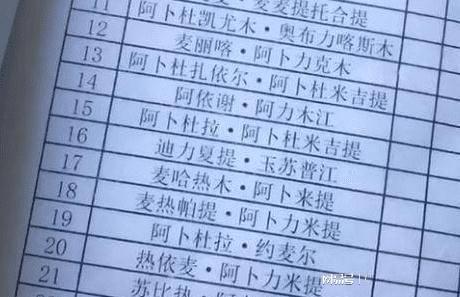 11 麦麦提托合提
12 阿卜杜凯尤木·奥布力喀斯木
13 麦丽喀·阿卜力克木
14 阿卜杜扎依尔·阿卜杜米吉提
15 阿依谢·阿力木江
16 阿卜杜拉·阿卜杜米吉提
17 迪力夏提·玉苏普江
18 麦哈热木·阿卜来提
19 麦热帕提·阿卜力米提
20 阿卜杜拉·约麦尔
21 热依麦·阿卜力米提
苏比热·